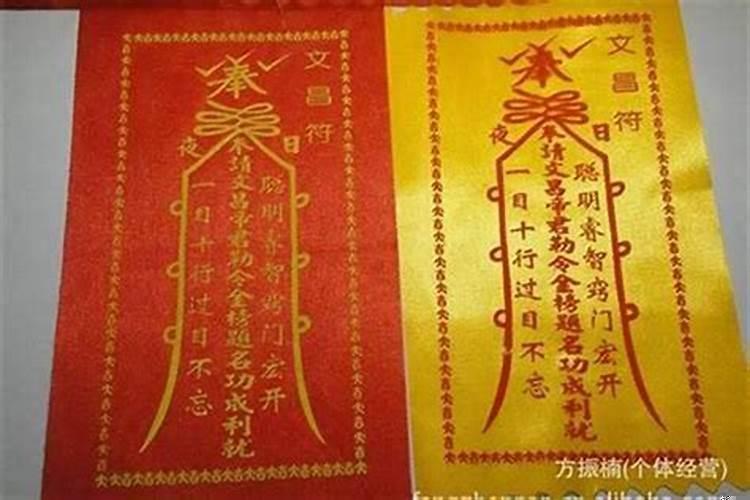 文昌符
奉
日
夜
聪明睿智窍门宏开
奉請文昌帝君勒令金榜題名功成利就
一目十行过目不忘
文昌符
奉
日
夜
聪明睿智窍门宏开
奉請文昌帝君勒令金榜題名功成利就
一目十行过目不忘
方振楠(个体经营)